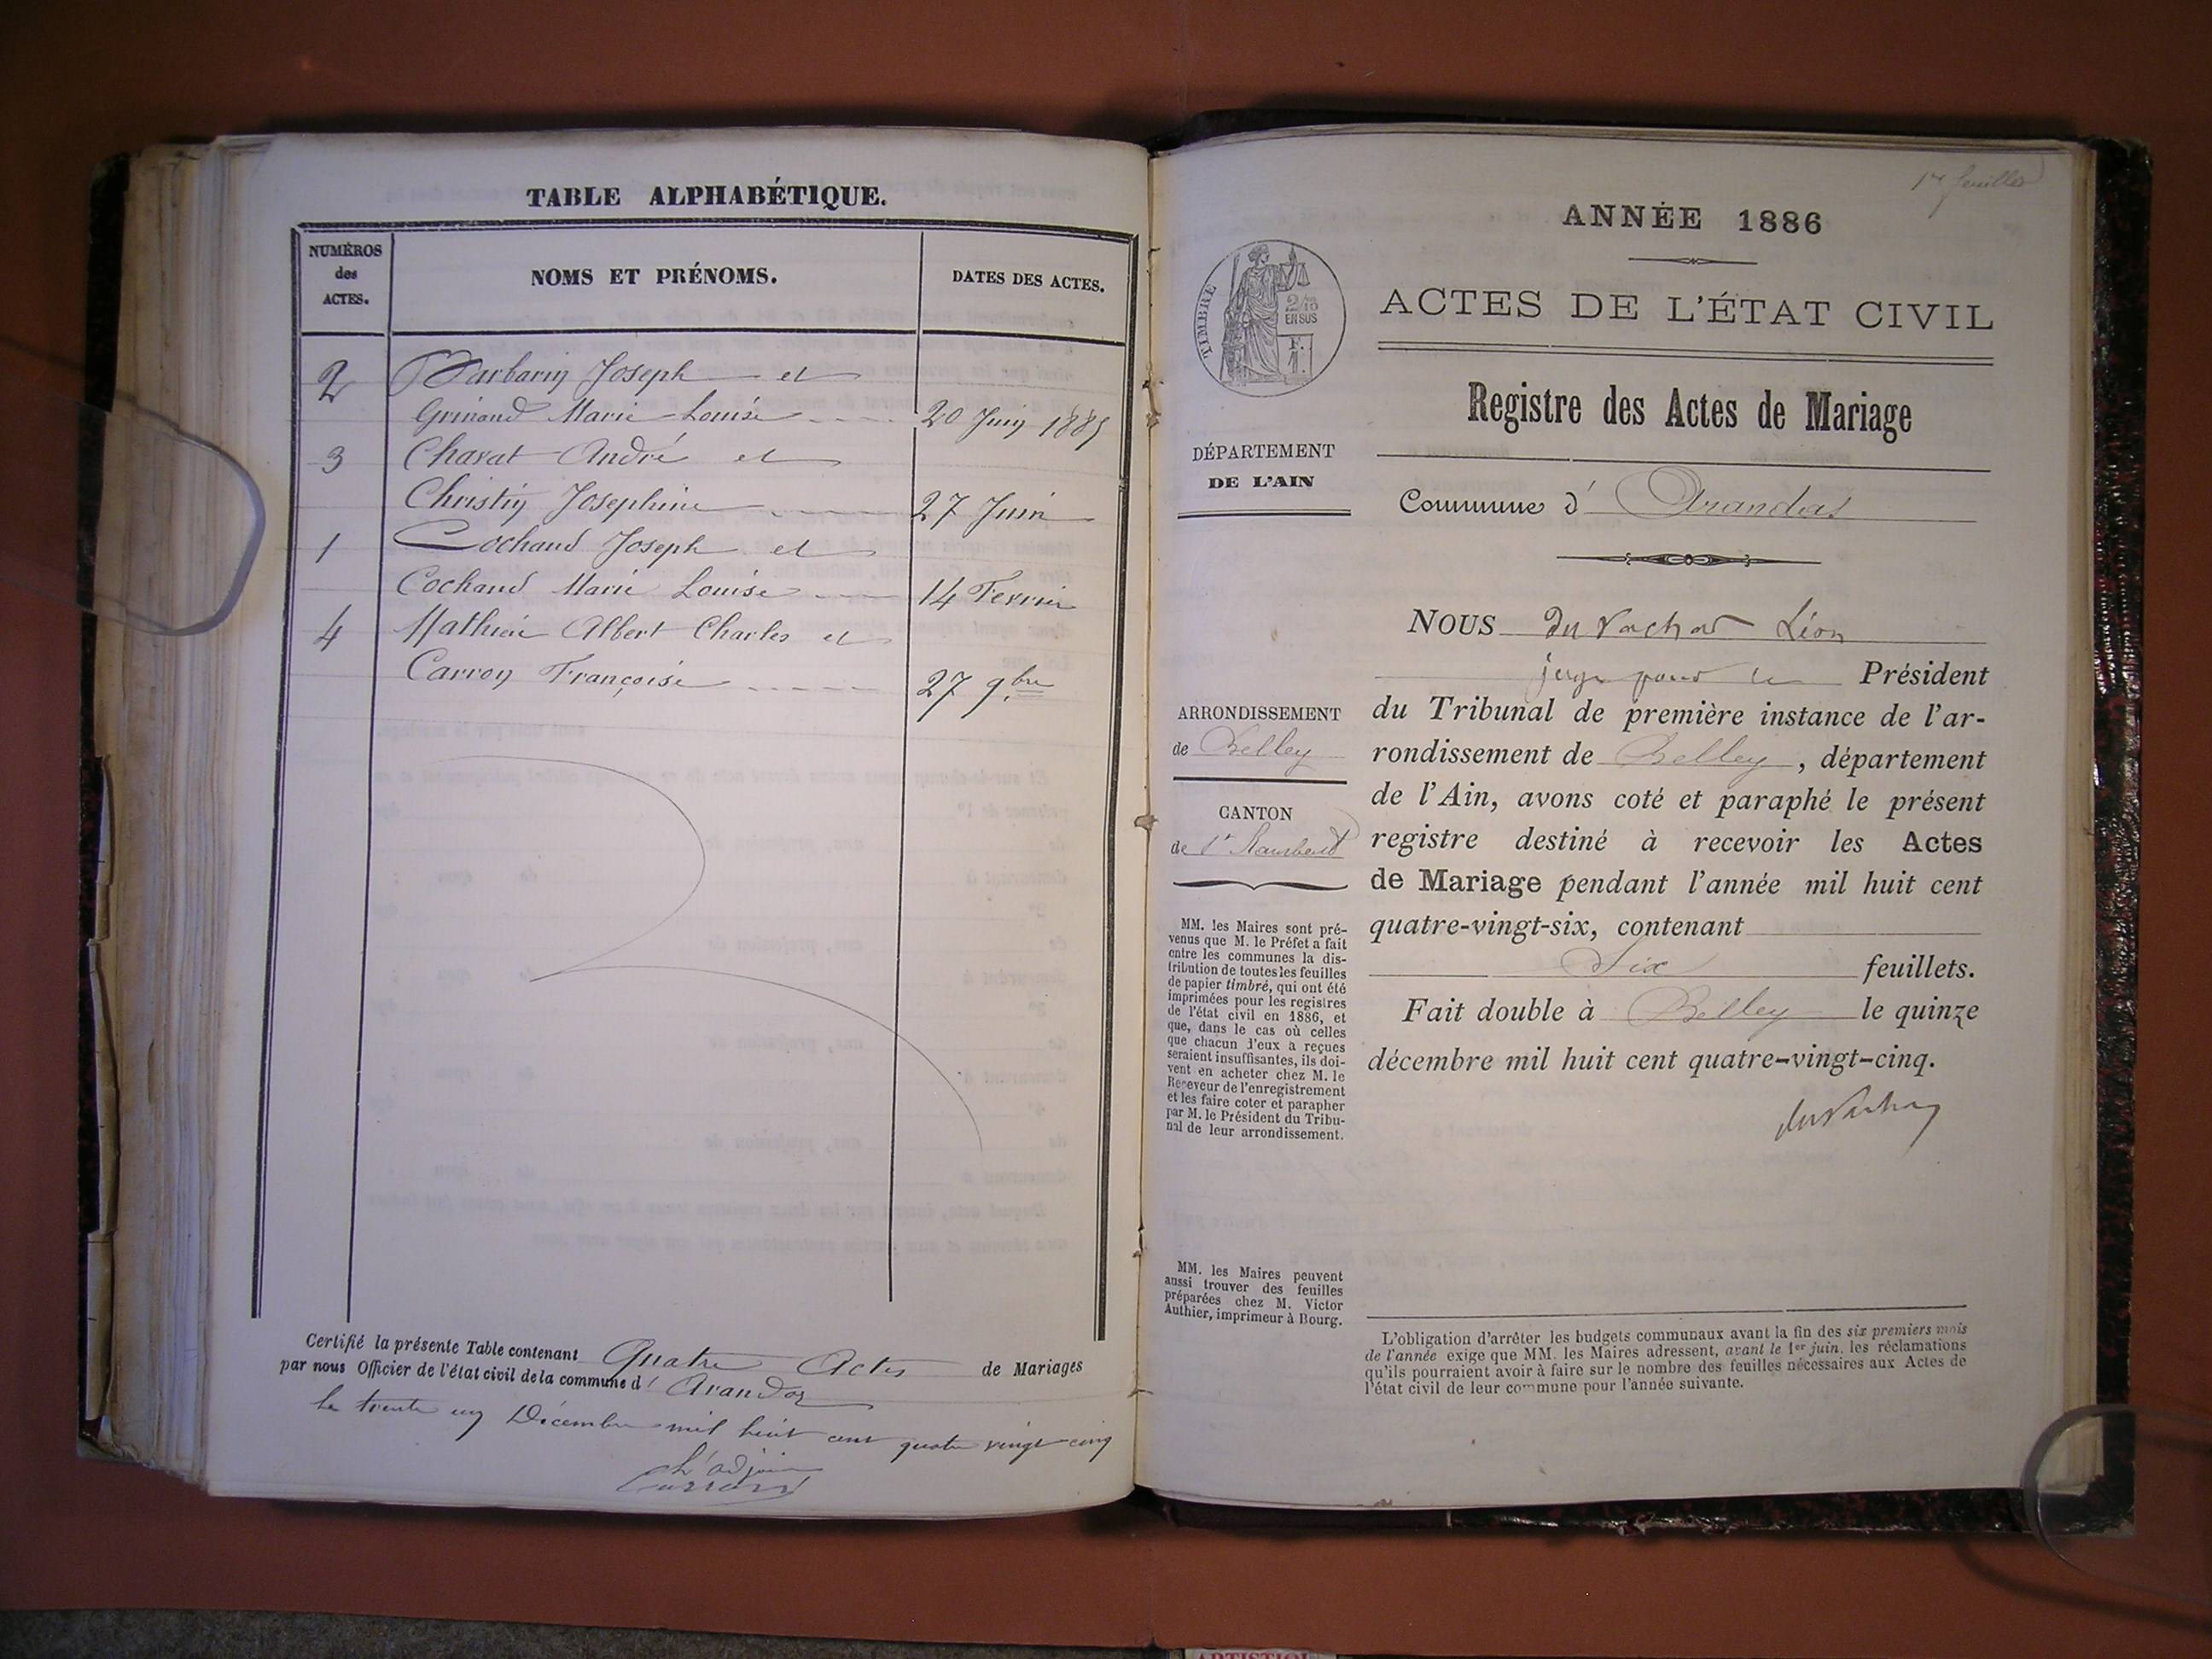 TABLE ALPHABÉTIQUE.
NUMÉROS
des
ACTES.
NOMS ET PRÉNOMS.
DATES DES ACTES.
2 Barbarin Joseph et
Grinand Marie-Louise 20 Juin 1885
3 Charat André et
Christin Josephine 27 Juin
1 Cochand Joseph et
Cochand Marie Louise 14 Fevrier
4 Mathieu Albert Charles et
Carron Françoise 27 9.bre
Certifié la présente Table contenant Quatre Actes de Mariages
par nous Officier de l'état civil de la commune d' Arandas
le trente un Décembre mil huit cent quatre vingt-cinq
L'adjoint
1er feuillet
ANNÉE 1886
ACTES DE L'ÉTAT CIVIL
TIMBRE
2/10
EN SUS
Registre des Actes de Mariage
DÉPARTEMENT
DE L'AIN
Commune d' Arandas
NOUS du Vachat Léon
juge pour le Président
du Tribunal de première instance de l'ar-
rondissement de Belley, département
de l'Ain, avons coté et paraphé le présent
registre destiné à recevoir les Actes
de Mariage pendant l'année mil huit cent
quatre-vingt-six, contenant
Six feuillets.
Fait double à Belley le quinze
décembre mil huit cent quatre-vingt-cinq.
duVachat
ARRONDISSEMENT
de Belley
CANTON
de St Rambert
MM. les Maires sont pré-
venus que M. le Préfet a fait
entre les communes la dis-
tribution de toutes les feuilles
de papier timbré, qui ont été
imprimées pour les registres
de l'état civil en 1886, et
que, dans le cas où celles
que chacun d'eux a reçues
seraient insuffisantes, ils doi-
vent en acheter chez M. le
Receveur de l'enregistrement
et les faire coter et parapher
par M. le Président du Tribu-
nal de leur arrondissement.
MM. les Maires peuvent
aussi trouver des feuilles
préparées chez M. Victor
Authier, imprimeur à Bourg.
L'obligation d'arrêter les budgets communaux avant la fin des six premiers mois
de l'année exige que MM. les Maires adressent, avant le 1er juin, les réclamations
qu'ils pourraient avoir à faire sur le nombre des feuilles nécessaires aux Actes de
l'état civil de leur commune pour l'année suivante.